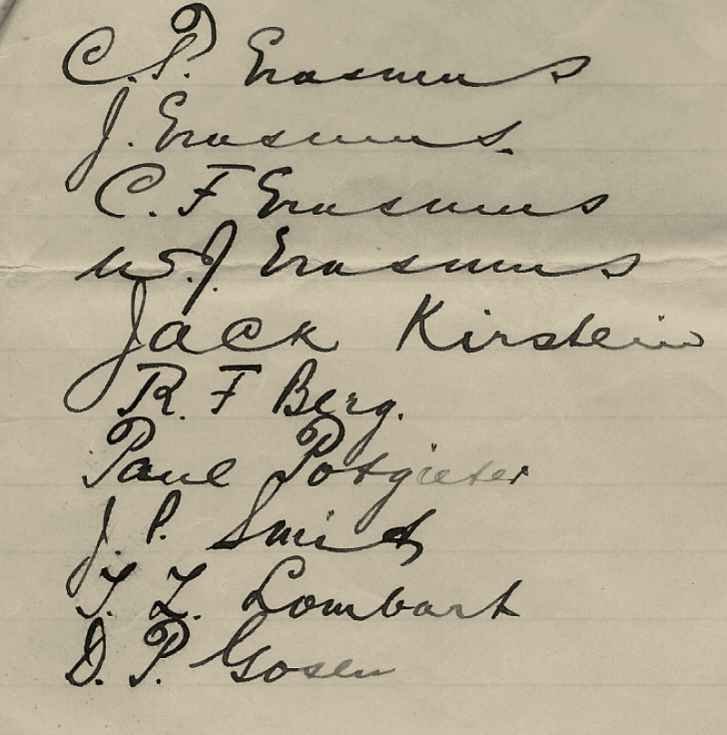 C. P. Erasmus
J. Erasmus.
C. F Erasmus
W. J. Erasmus
Jack Kirstein
R. F Berg.
Paul Potgieter
J. P. Smit
T. Z. Lombart
D. P. Gosen